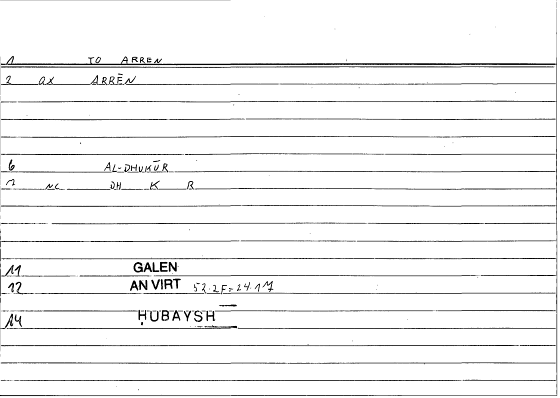 1 TO ARREN
2 ax ARRĒN
6 AL-DHUKŪR
7 NL DH K R
11 GALEN
12 AN VIRT 52.2F=24.17
14 ḤUBAYSH